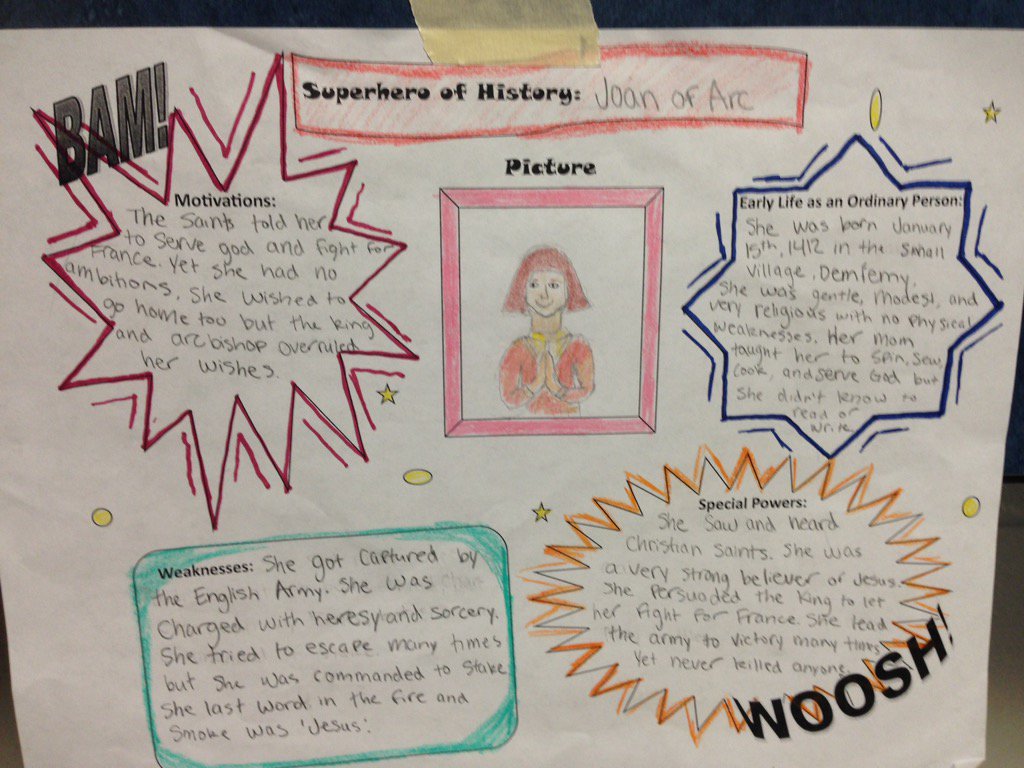 BAM!
Superhero of History: Joan of Arc
Picture
Motivations:
The Saints told her
to serve god and fight for
France. Yet she had no
ambitions. She wished to
go home too but the king
and arcbishop overruled
her wishes.
Early Life as an Ordinary Person:
She was born January
15th, 1412 in the small
village, Demfemy.
She was gentle, modest, and
very religious with no physical
weaknesses. Her mom
taught her to spin, sew,
cook, and serve God but
she didn't know to
read or
write
Weaknesses: She got captured by
the English Army. She was
Charged with heresy and sorcery.
She tried to escape many times
but she was commanded to stake
She last word in the fire and
smoke was 'Jesus'.
Special Powers:
She saw and heard
Christian Saints. She was
a very strong believer of Jesus.
She persuaded the king to let
her fight for France. She lead
the army to victory many times
Yet never killed anyone.
WOOSH!